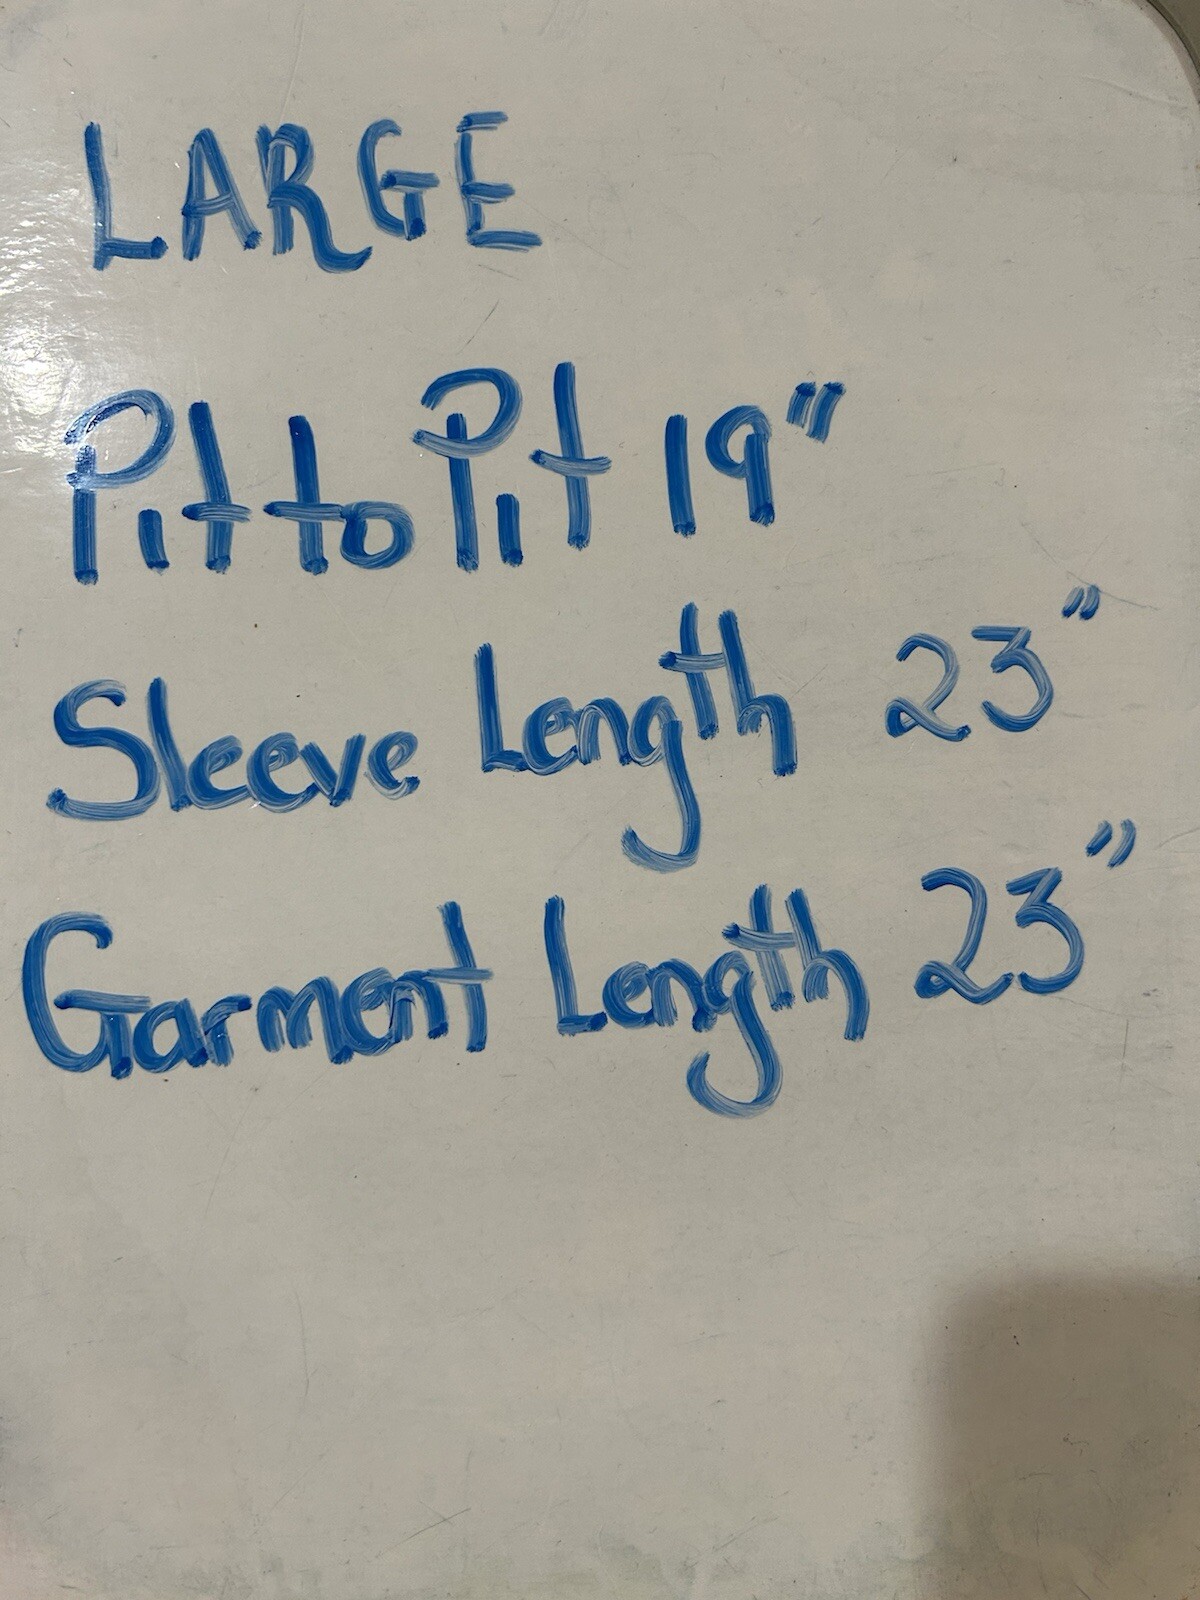 LARGE
Pit to Pit 19"
Sleeve Length 23"
Garment Length 23"